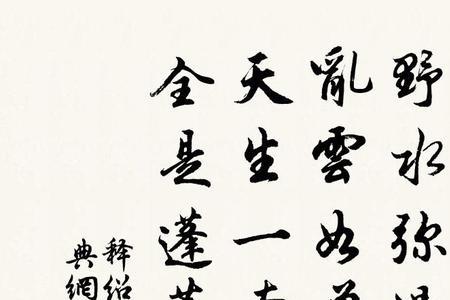 野水弥
亂雲如
天生一
全是蓬
释绍
典網